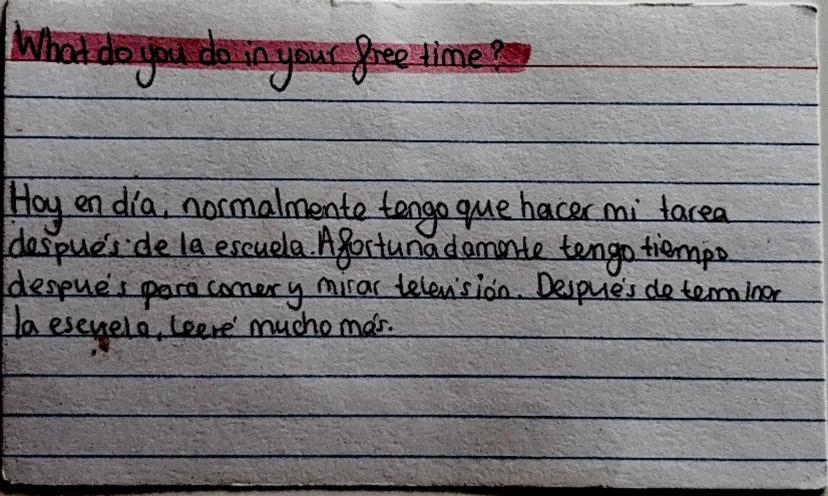 What do you do in your free time?
Hoy en día, normalmente tengo que hacer mi tarea
después de la escuela. Afortunadamente tengo tiempo
después para comer y mirar televisión. Después de terminar
la escuela, leeré mucho más.